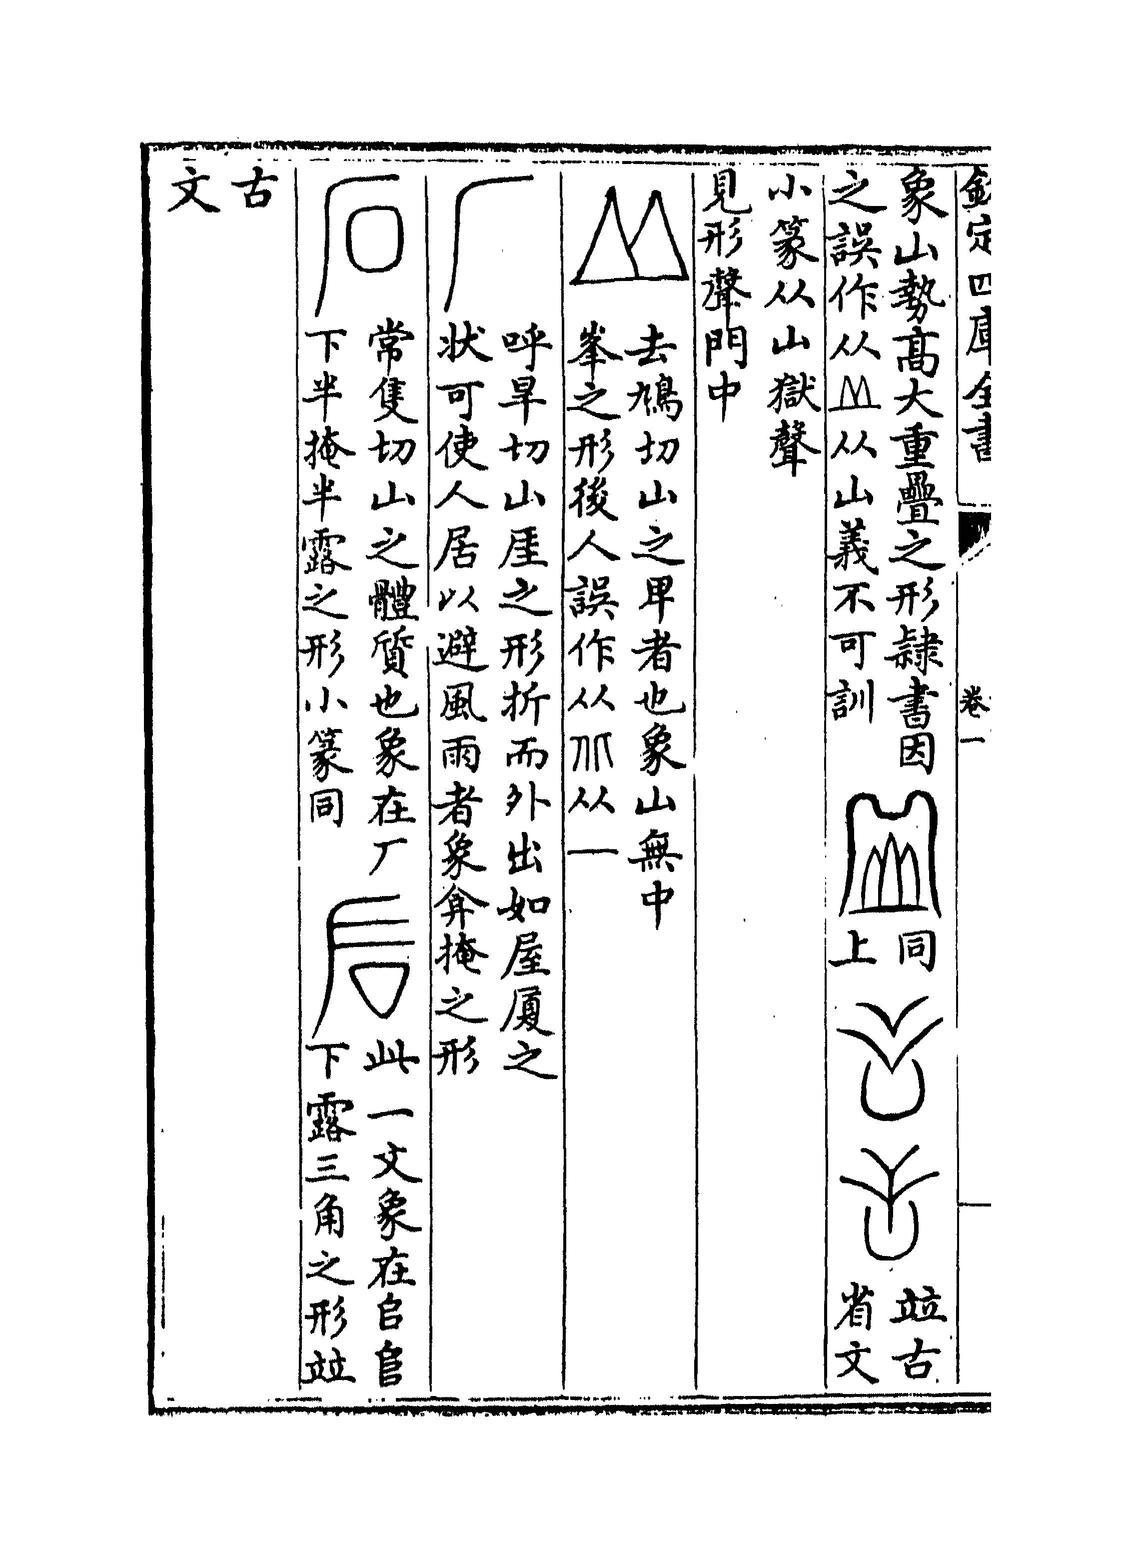 欽定四庫全書
卷一
象山勢高大重疊之形隷書因
之誤作从𠀉从山義不可訓
同
上
竝古
省文
小篆从山獄聲
見形聲門中
去鳩切山之卑者也象山無中
峯之形後人誤作从㸚从一
呼旱切山厓之形折而外出如屋厦之
状可使人居以避風雨者象弇掩之形
常隻切山之體質也象在厂
下半掩半露之形小篆同
此一文象在𠂤
下露三角之形竝
古
文